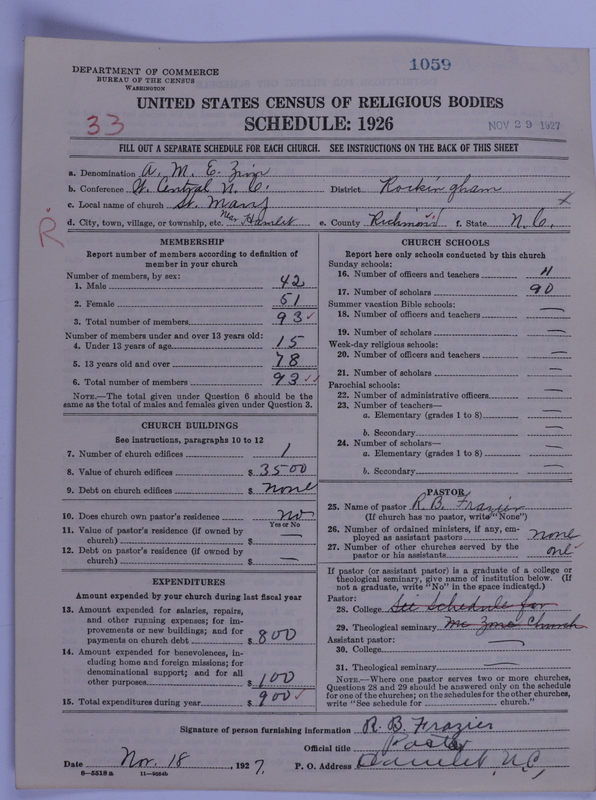 1059
DEPARTMENT OF COMMERCE
BUREAU OF THE CENSUS
WASHINGTON
UNITED STATES CENSUS OF RELIGIOUS BODIES
33
SCHEDULE: 1926
NOV 29 1927
FILL OUT A SEPARATE SCHEDULE FOR EACH CHURCH. SEE INSTRUCTIONS ON THE BACK OF THIS SHEET
a. Denomination A. M. E. Zion
b. Conference W. Central N. C. District Rockingham
c. Local name of church St. Mary x
d. City, town, village, or township, etc. Near Hamlet e. County Richmond f. State N. C.
R
MEMBERSHIP
Report number of members according to definition of
member in your church
Number of members, by sex:
1. Male 42
2. Female 51
3. Total number of members 93 ✓
Number of members under and over 13 years old:
4. Under 13 years of age 15
5. 13 years old and over 78
6. Total number of members 93 ✓✓
NOTE.—The total given under Question 6 should be
same as the total of males and females given under Question 3.
CHURCH BUILDINGS
See instructions, paragraphs 10 to 12
7. Number of church edifices 1
8. Value of church edifices $ 3500
9. Debt on church edifices $ none
10. Does church own pastor's residence no
Yes or No
11. Value of pastor's residence (if owned by
church) $ —
12. Debt on pastor's residence (if owned by
church) $ —
EXPENDITURES
Amount expended by your church during last fiscal year
13. Amount expended for salaries, repairs,
and other running expenses; for im-
provements or new buildings; and for
payments on church debt $ 800
14. Amount expended for benevolences, in-
cluding home and foreign missions; for
denominational support; and for all
other purposes $ 100
15. Total expenditures during year $ 900 ✓
CHURCH SCHOOLS
Report here only schools conducted by this church
Sunday schools:
16. Number of officers and teachers 11
17. Number of scholars 90
Summer vacation Bible schools:
18. Number of officers and teachers —
19. Number of scholars —
Week-day religious schools:
20. Number of officers and teachers —
21. Number of scholars —
Parochial schools:
22. Number of administrative officers —
23. Number of teachers—
a. Elementary (grades 1 to 8) —
b. Secondary —
24. Number of scholars—
a. Elementary (grades 1 to 8) —
b. Secondary —
PASTOR
25. Name of pastor R. B. Frazier
(If church has no pastor, write "None")
26. Number of ordained ministers, if any, em-
ployed as assistant pastors none
27. Number of other churches served by the
pastor or his assistants one
If pastor (or assistant pastor) is a graduate of a college or
theological seminary, give name of institution below. (If
not a graduate, write "No" in the space indicated.)
Pastor:
28. College See Schedule for
29. Theological seminary Mc Zion Church
Assistant pastor:
30. College —
31. Theological seminary —
NOTE.—Where one pastor serves two or more churches,
Questions 28 and 29 should be answered only on the schedule
for one of the churches; on the schedules for the other churches,
write "See schedule for church."
Signature of person furnishing information R. B. Frazier
Official title Pastor
Date Nov. 18, 1927. P. O. Address Hamlet, N. C.,
8-5518 a 11-9054b